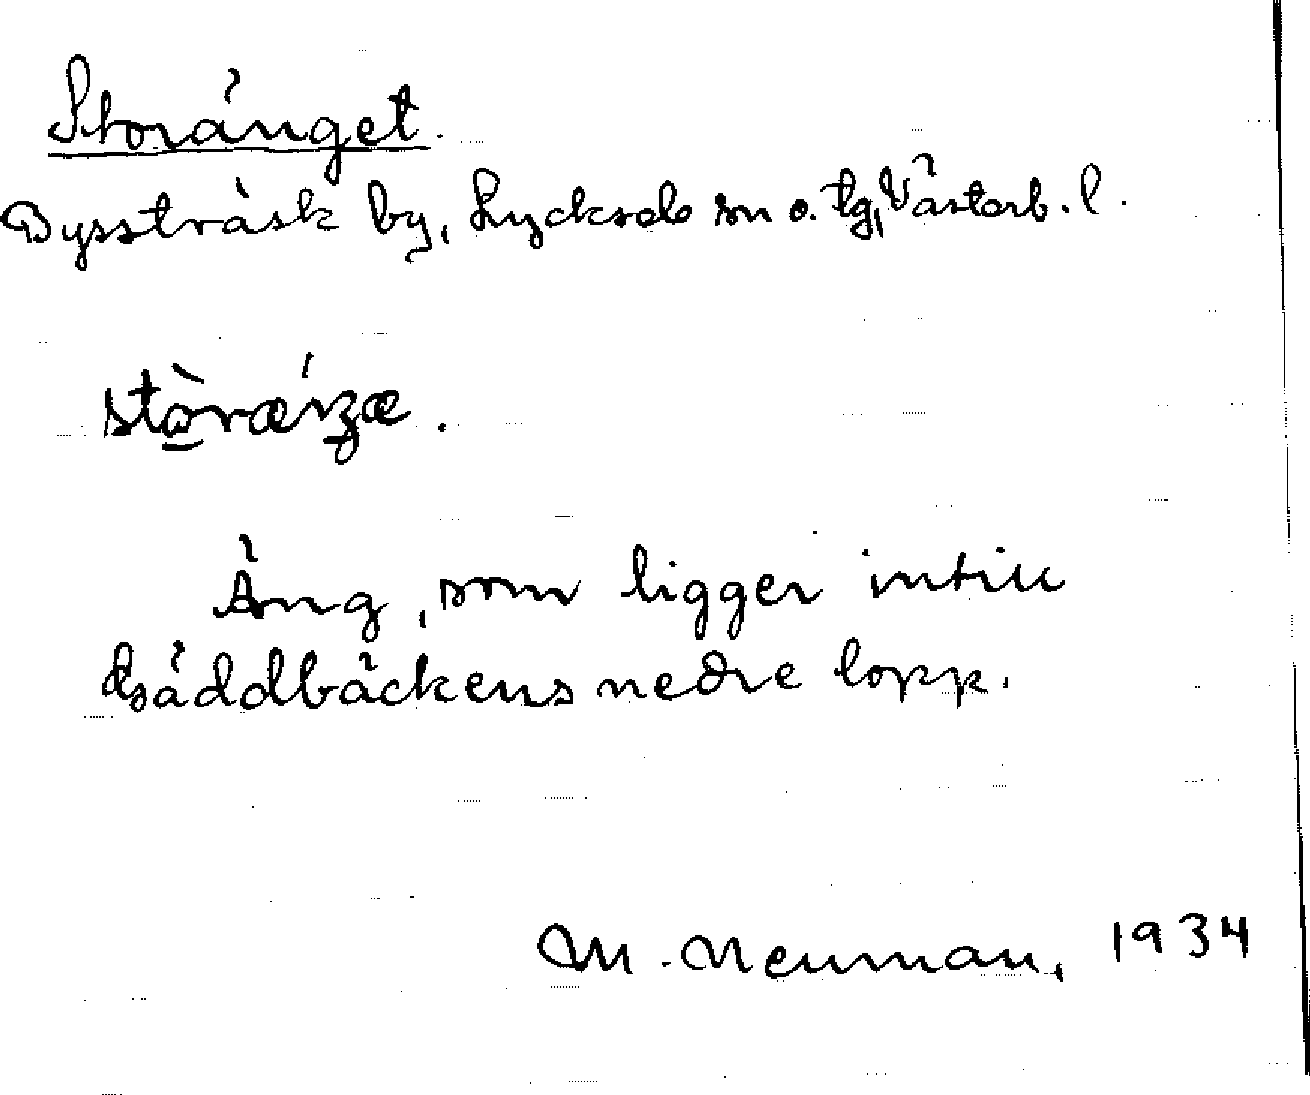 Storänget.
Dyssträsk by, Lycksele sn o. tg, Västerb. l.
stòræ´ŋæ.
Äng, som ligger intill
Gäddbäckens nedre lopp.
M. Neuman, 1934